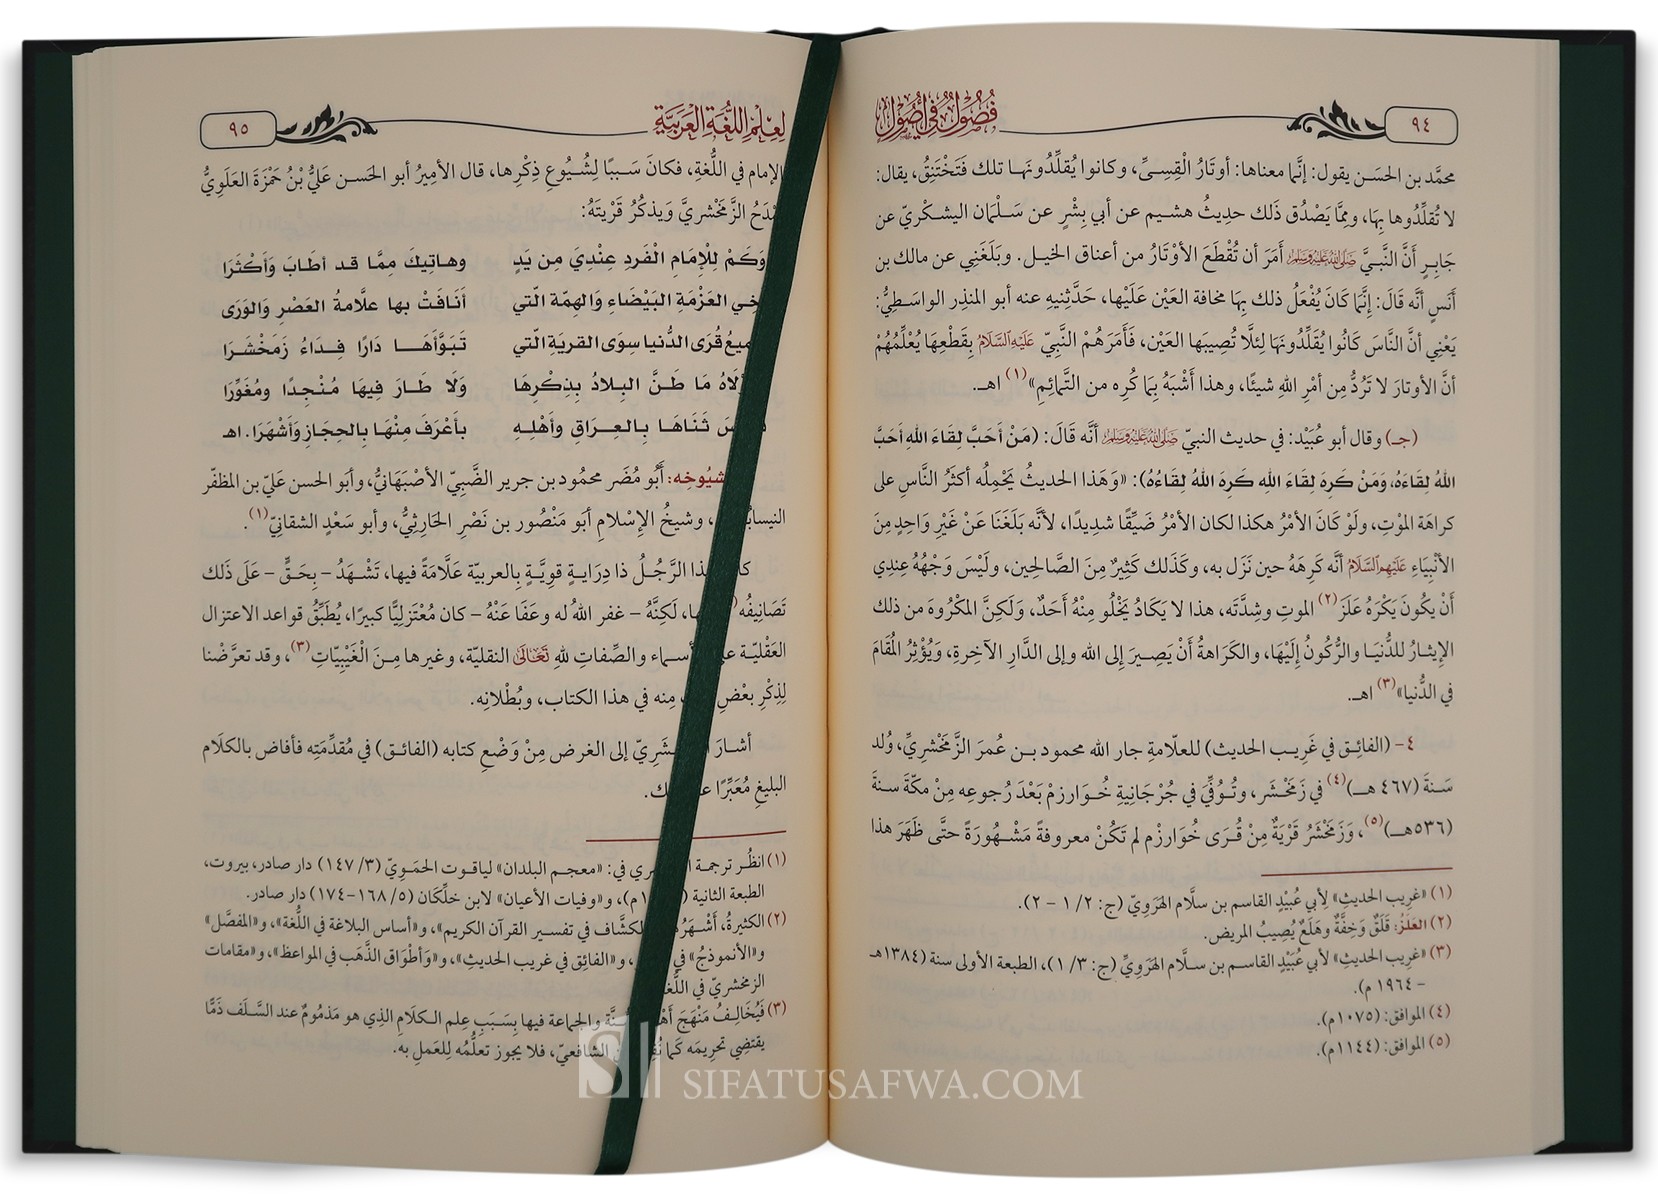 ٩٤
فُصُولٌ في أُصُولِ
محمَّد بن الحسَن يقول: إنَّما معناها: أوتَارُ الْقِسِىِّ، وكانوا يُقلِّدُونَهـا تلك فَتَخْتَنِقُ، يقال:
لا تُقلِّدُوها بِهَا، وممَّا يَصْدُق ذَلك حديثُ هشيم عن أبي بِشْرٍ عن سَلْمَان اليشكْريّ عن
جَابِرٍ أنَّ النَّبيَّ ﷺ أمَرَ أن تُقْطَعَ الأوْتَارُ من أعناق الخيل. وبَلَغَنِي عن مالك بن
أنَسٍ أنَّه قَالَ: إنَّمَا كَانَ يُفْعَلُ ذلك بِهَا مخافة العَيْن عَلَيْها، حَدَّثنِيهِ عنه أبو المنذِر الواسَطِيُّ:
يَعْنِي أنَّ النَّاسَ كَانُوا يُقَلِّدُونَهَا لِئلَّا تُصِيبَها العَيْن، فَأمَرَهُمْ النَّبيّ عَلَيْهِ السَّلَامُ بِقَطْعِها يُعْلِّمُهُمْ
أنَّ الأوتارَ لا تَرُدُّ مِن أمْرِ اللهِ شيئًا، وهذا أشْبَهُ بِمَا كُرِه من التَّمائِمِ»(١) اهـ.
(جـ) وقال أبو عُبَيْد: في حديث النبيّ ﷺ أنَّه قَالَ: (مَنْ أحَبَّ لِقَاءَ اللهِ أحَبَّ
اللهُ لِقاءَهُ، وَمَنْ كَرِهَ لِقَاءَ اللهِ كَرِهَ اللهُ لِقَاءُهُ): «وَهَذا الحديثُ يَحْمِلُه أكثرُ النَّاسِ على
كراهَة الموْتِ، ولَوْ كَانَ الأمْرُ هكذا لكان الأمْرُ ضَيِّقًا شديدًا، لأنَّه بَلَغَنَا عَنْ غَيْرِ وَاحِدٍ مِنَ
الأنْبِيَاءِ عَلَيْهِم السَّلَامُ أنَّه كَرِهَهُ حين نَزَل به، وكَذَلك كَثِيرٌ مِنَ الصَّالحِين، ولَيْسَ وَجْهُهُ عِندِي
أَنْ يكُونَ يَكْرَهُ عَلَزَ(٢) الموتِ وشِدَّتَه، هذا لا يَكَادُ يَخْلُو مِنْهُ أحَدٌ، وَلَكِنَّ المكْرُوهَ من ذلك
الإيثارُ للدُّنيَا والرُّكُونُ إلَيْهَا، والكَرَاهةُ أنْ يَصِيرَ إلى الله وإلى الدَّارِ الآخِرةِ، وَيُؤْثِرُ المُقَامَ
في الدُّنيا»(٣) اهـ.
٤- (الفائِق في غَرِيب الحديث) للعلّامةِ جار الله محمود بـن عُمرَ الزَّمخْشَريِّ، وُلد
سَنةَ (٤٦٧ هـ)(٤) في زَمَخْشَر، وتُـوُفِّيَ في جُرْجَانِيةِ خُـوَارزمْ بَعْدَ رُجوعِه مِنْ مكّةَ سنة
(٥٣٦هـ)(٥)، وَزَمَخْشَرُ قَرْيَةٌ مِنْ قُـرَى خُوَارزْم لم تَكُنْ معروفةً مَشْـهُورَةً حتَّى ظَهَرَ هذا
(١) «غريب الحديث» لأبي عُبَيْدٍ القاسم بن سلَّام الهَرَوِيّ (ج: ١/٢ - ٢).
(٢) العَلَزُ: قَلَقٌ وَخِفَّةٌ وهَلَعٌ يُصِيبُ المريض.
(٣) «غريب الحديث» لأبي عُبَيْدٍ القاسم بن سلَّام الهَرَوِيِّ (ج: ١/٣)، الطبعة الأولى سنة (١٣٨٤هـ
- ١٩٦٤ م).
(٤) الموافق: (١٠٧٥م).
(٥) الموافق: (١١٤٤م).
لِعِلْمِ اللُّغَةِ العَرَبِيَّةِ
٩٥
الإمام في اللُّغةِ، فكانَ سَببًا لِشُيُوعِ ذِكْرِها، قال الأميرُ أبو الحَسـن عَليُّ بْنُ حَمْزَةَ العَلَوِيُّ
الزَّمَخْشريَّ وَيذكُرُ قَرْيتَهُ:
وَكَمْ لِلْإمَامِ الْفَردِ عِنْدِي مِن يَدٍ وهاتِيكَ مِمَّا قد أطَابَ وَأكْثَرَا
العَزْمَةِ البَيْضَاءِ وَالهِمّة الّتي أنَافَتْ بها علَّامةُ العَصْرِ والوَرَى
قُرَى الدُّنيا سِوَى القريَةِ الّتي تَبَوَّأهَـا دَارًا فِـدَاءُ زَمَخْشَرَا
مَا طَنَّ البِلادُ بِذِكْرِهَا وَلَا طَـارَ فِيهَا مُنْجِدًا ومُغَوِّرَا
ثَنَاهَا بِـالعِـرَاقِ وأهْلِـهِ بأعْرَفَ مِنْهَا بِالحِجَازِ وَأشْهَرَا. اهـ
شيُوخِه: أبُو مُضَر محمُود بن جرير الضَّبِّيّ الأصْبَهَانيُّ، وأبَو الحسن عَليّ بن المظفّر
وشيخُ الإسْلامِ أبَو مَنْصُور بن نَصْرِ الحَارِثِيُّ، وأبو سَعْدٍ الشقانِيّ(١).
الرَّجُلُ ذا دِرَايـةٍ قويَّةٍ بِالعربيّة عَلَّامَةً فيها، تَشْـهَدُ - بِحَقٍّ - عَلَى ذَلك
تَصَانِيفُه لَكِنَّهُ - غفر اللهُ له وعَفَا عَنْهُ - كان مُعْتَزليًّا كبيرًا، يُطَبِّقُ قواعد الاعتزال
العَقْليّة والصِّفاتِ للهِ تَعَالَى النقليّة، وغيرها مِنَ الْغَيْبِيّاتِ(٣)، وقد تعرَّضْنا
لِذِكْرِ بعْضِ مِنه في هذا الكتاب، وبُطْلانِه.
أشـارَ إلى الغرض مِنْ وَضْعِ كتابه (الفائـق) في مُقدّمَتِه فأفاض بالكلَام
البليغِ مُعَبِّرًا
(١) انظُر ترجمة في: «معجم البلدان» لياقوت الحمَوِيّ (٣/ ١٤٧) دار صادر، بيروت،
الطبعة الثانية و«وفيات الأعيان» لابن خلِّكان (٥/ ١٦٨-١٧٤) دار صادر.
(٢) الكثيرةُ، أشْهَرُ «الكشَّاف في تفسير القرآن الكريم»، و«أساس البلاغة في اللُّغة»، و«المفصَّل»
و«الأنموذجُ» في و«الفائِق في غريب الحديثِ»، و«أطْواق الذَّهَب في المواعظ»، و«مقامات
الزمخشريّ في
(٣) فَيُخَالِفُ مَنْهَجَ والجماعة فيها بِسَببِ عِلمِ الكلَامِ الذِي هو مَذمُومٌ عند السَّلف ذَمًّا
يقتضِي تحريمَه كَما الشافعيّ، فلا يجوز تعلُّمُه لِلعَملِ به.
SIFATUSAFWA.COM